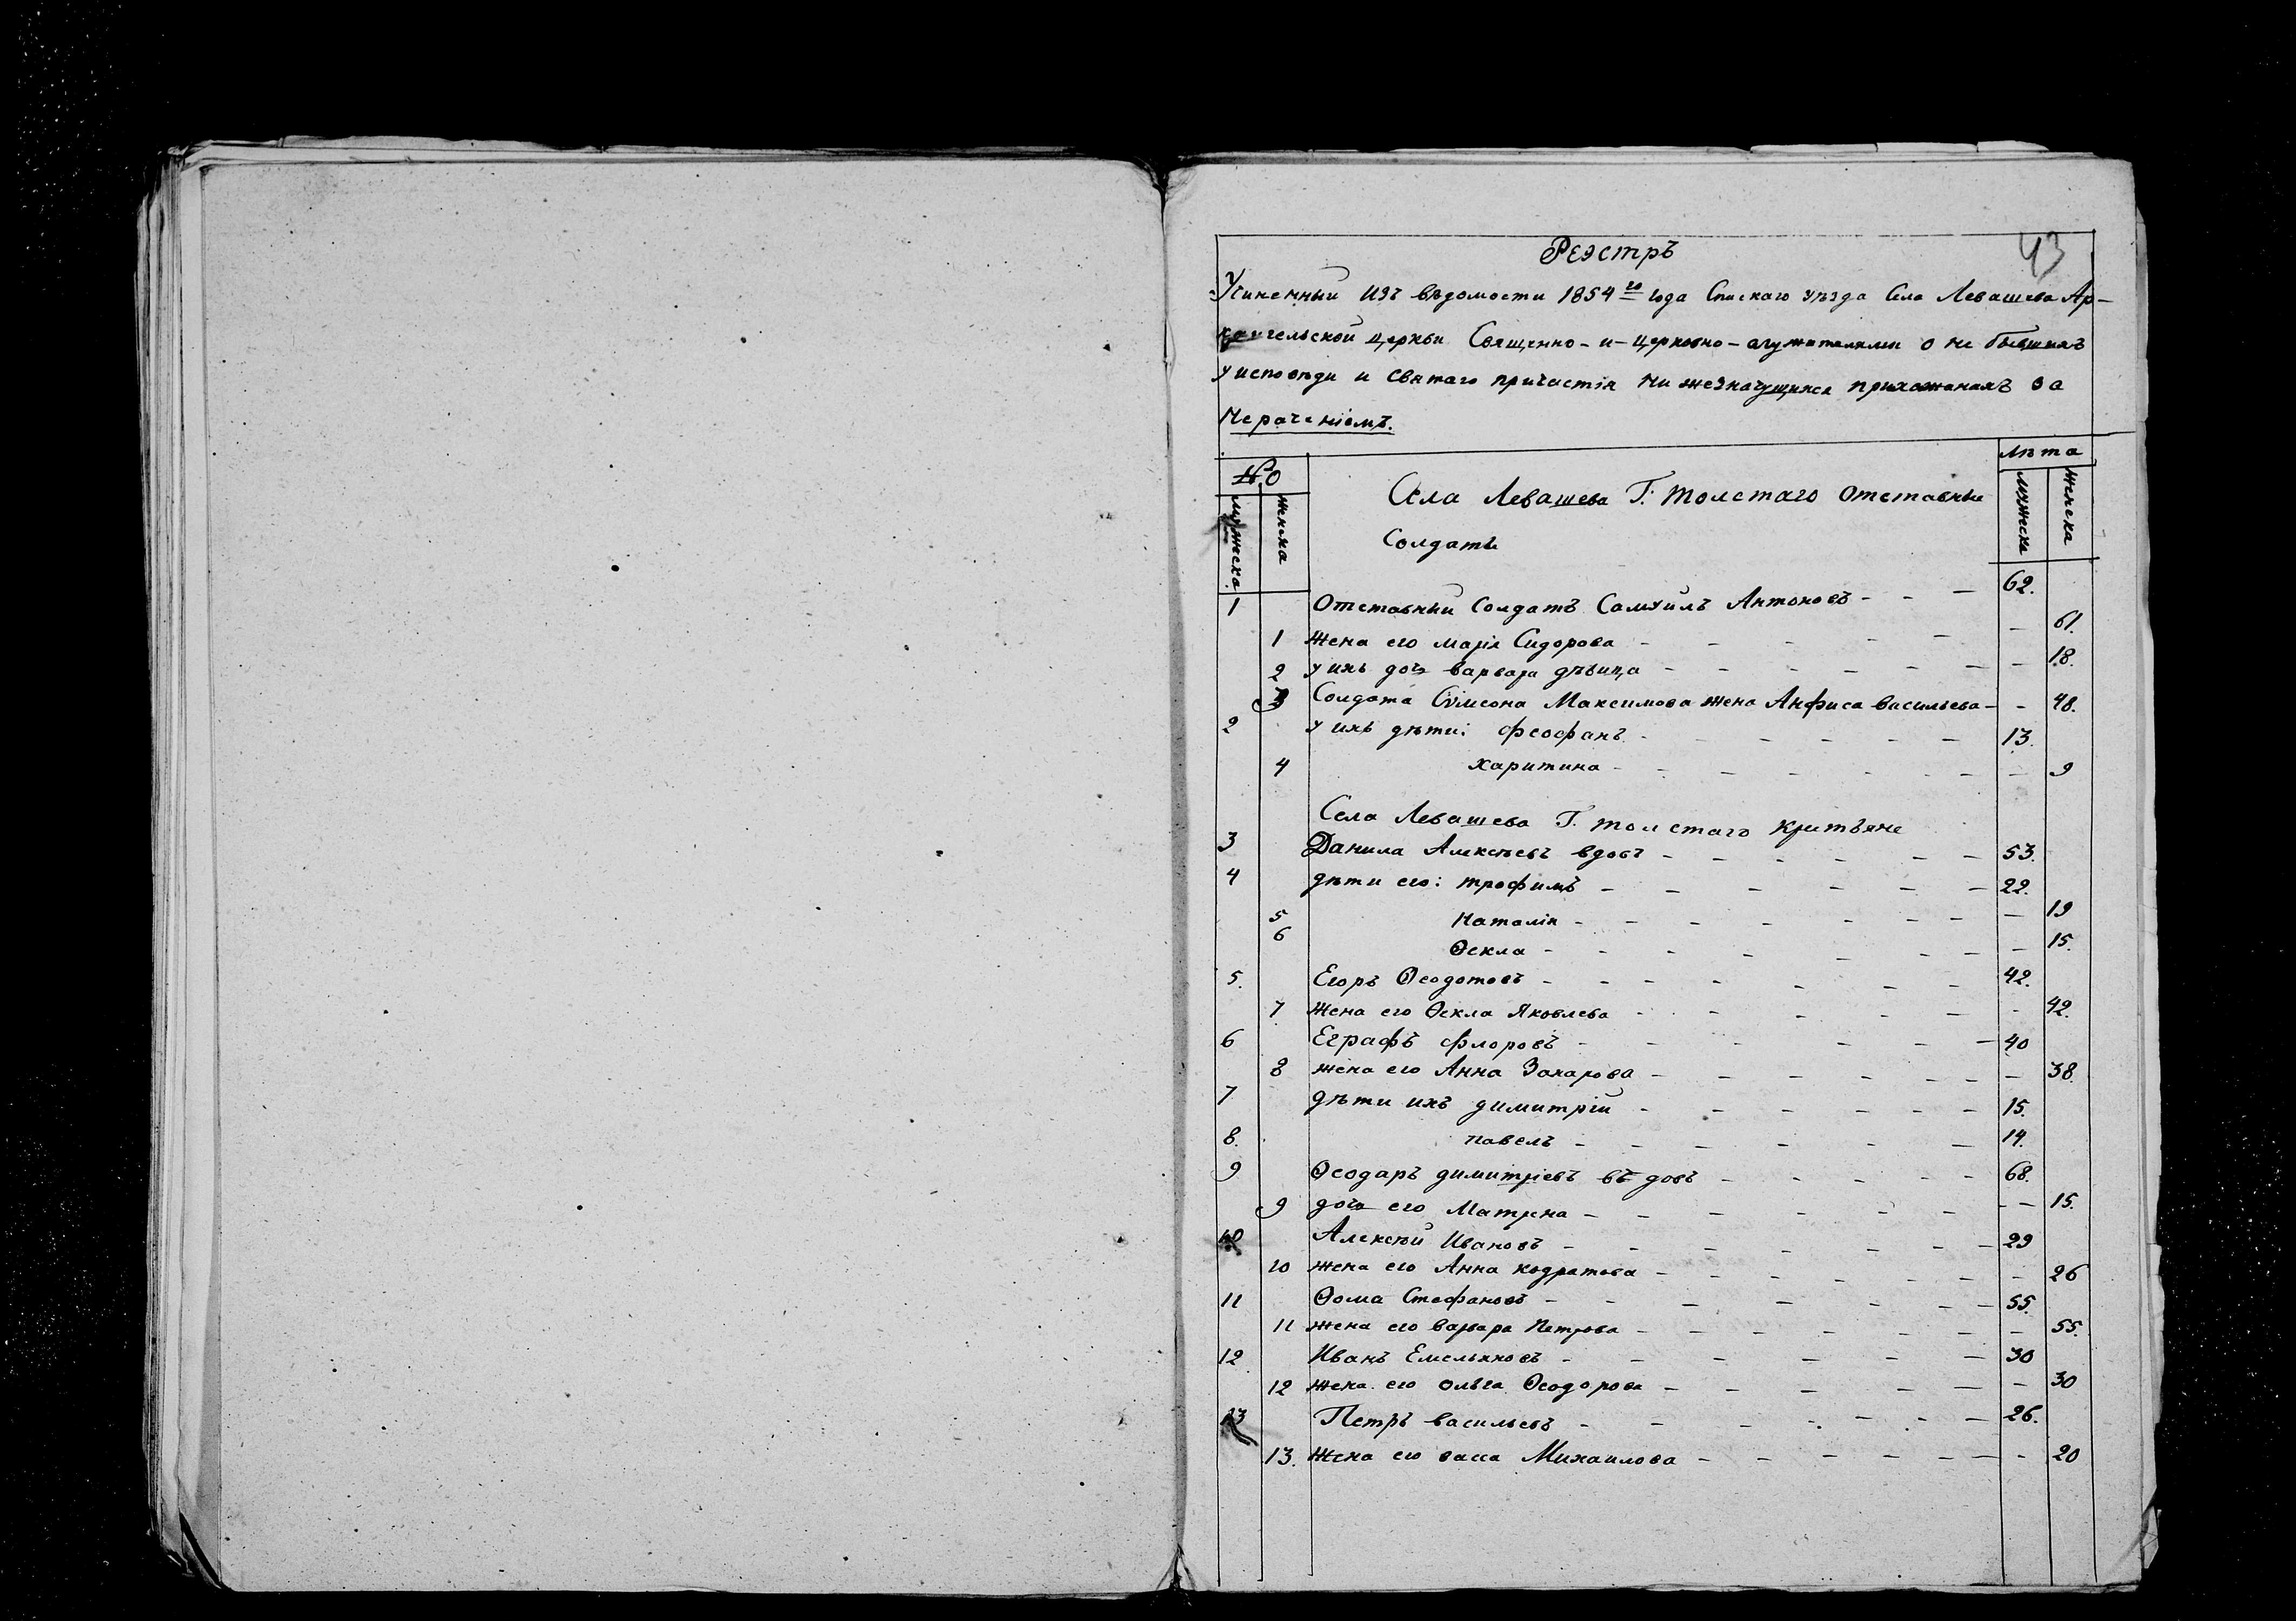 43
Реэстръ
Учиненный изъ вѣдомости 1854го года Спаскаго уѣзда Села Левашева Ар-
хангельской церкви Священно-и-церковно-служителями о не бывшихъ
у исповѣди и святаго причастія нижезначущихся прихожанахъ за
нераченіемъ.
№ лѣта
мужеска женска Села Левашева Г. толстаго отставные мужеска женска
Солдаты
1 Отставный Солдатъ Самуилъ Антоновъ - - - 62.
1 жена его марія Сидорова - - - - - - - 61.
2 у ихъ дочь варвара дѣвица - - - - - - - 18.
3 Солдата Сѵмеона Максимова жена Анфиса васильева - - 48.
2 у ихъ дѣти: феофанъ - - - - - - 13.
4 харитина - - - - - - - - 9
Села Левашева Г. толстаго крестьяне
3 Данила Алексѣевъ вдовъ - - - - - - 53.
4 дѣти его: трофимъ - - - - - - 22.
5 Наталія - - - - - - - - - 19
6 Ѳекла - - - - - - - - 15.
5. Егоръ Ѳеодотовъ - - - - - - - 42.
7 жена его Ѳекла Яковлева - - - - - - - 42.
6 Еграфъ флоровъ - - - - - - 40
8 жена его Анна Захарова - - - - - - - - 38.
7 дѣти ихъ димитрій - - - - - - 15.
8. павелъ - - - - - - 14.
9 Ѳеодаръ димитріевъ въдовъ - - - - - 68.
9 дочь его Матрена - - - - - - - - 15.
10 Алексѣй Ивановъ - - - - - - - 29
10 жена его Анна кодратова - - - - - - - 26
11 Ѳома Стефановъ - - - - - - - 55.
11 жена его варвара Петрова - - - - - - - 55.
12 Иванъ Емельяновъ - - - - - - 30
12 жена его ольга Ѳеодорова - - - - - - 30
13 Петръ васильевъ - - - - - - - 26.
13. жена его васса Михаилова - - - - - - - 20